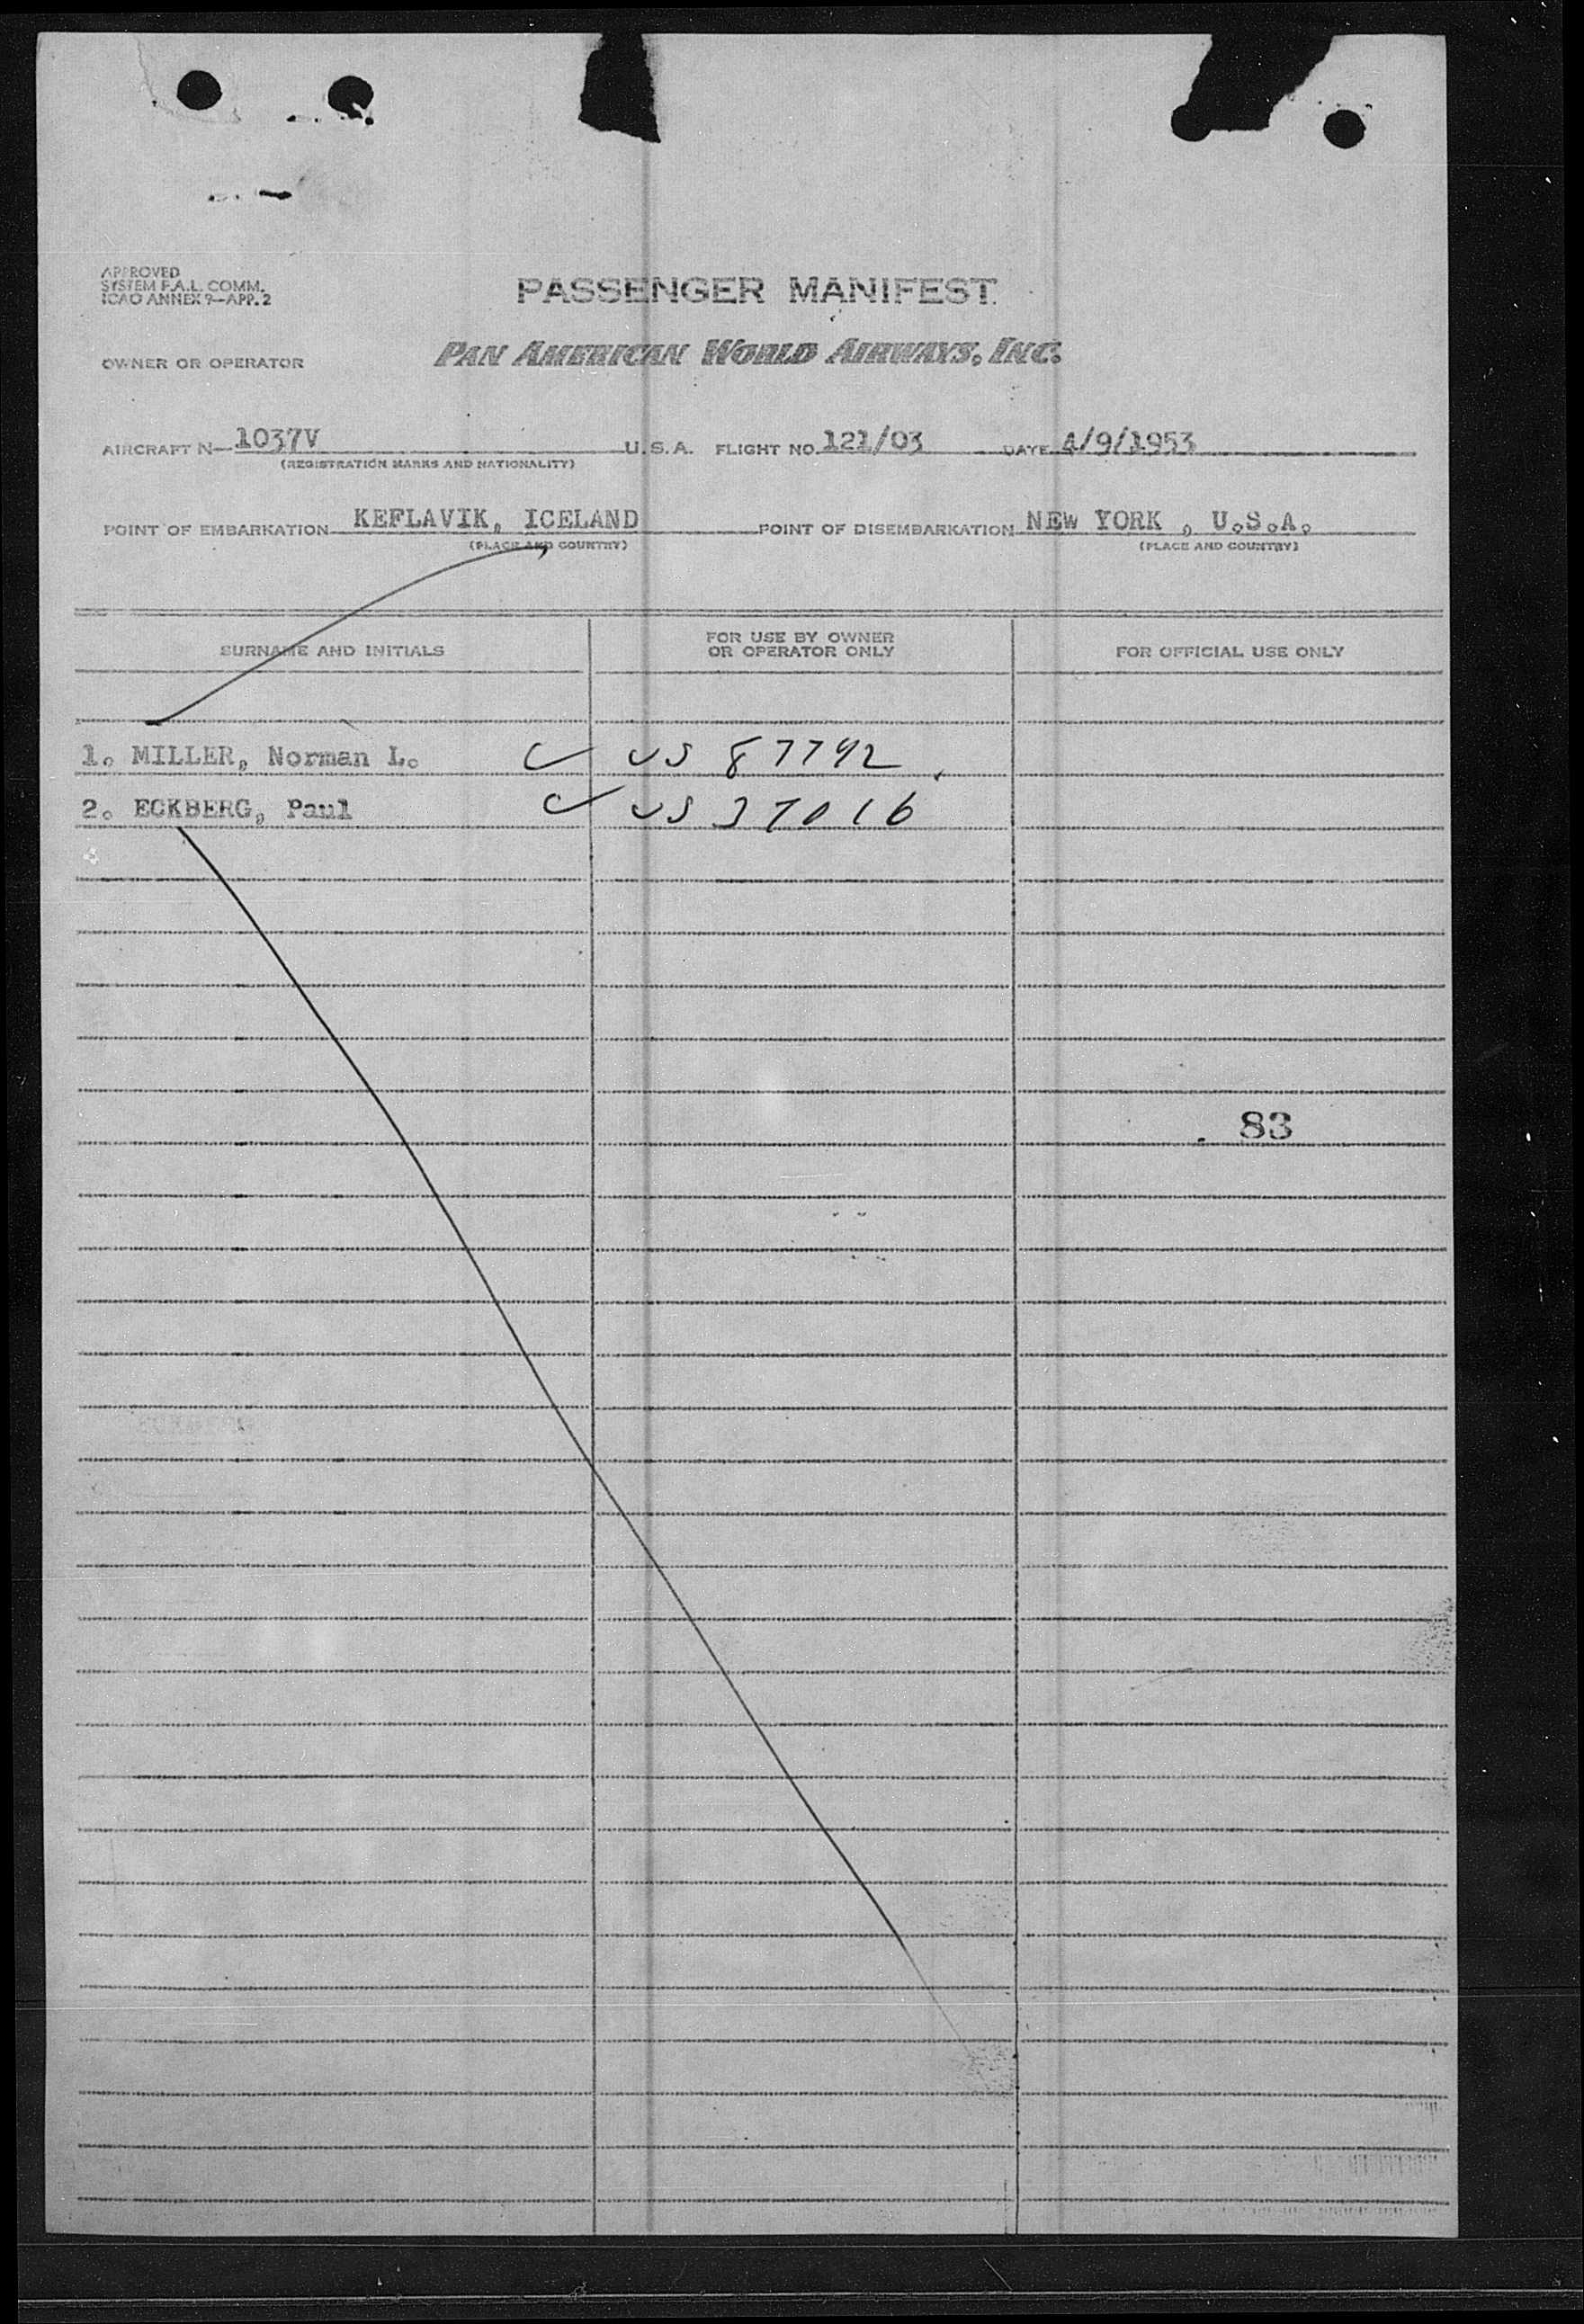 APPROVED
SYSTEM F.A.L. COMM.
ICAO ANNEX 9—APP. 2
PASSENGER MANIFEST
OWNER OR OPERATOR PAN AMERICAN WORLD AIRWAYS, INC.
AIRCRAFT N— 1037V U.S.A. FLIGHT NO. 121/03 DATE 4/9/1953
(REGISTRATION MARKS AND NATIONALITY)
POINT OF EMBARKATION KEFLAVIK, ICELAND POINT OF DISEMBARKATION NEW YORK , U.S.A.
(PLACE AND COUNTRY) (PLACE AND COUNTRY)
SURNAME AND INITIALS FOR USE BY OWNER OR OPERATOR ONLY FOR OFFICIAL USE ONLY
1. MILLER, Norman L. ✓ US 87792
2. ECKBERG, Paul ✓ US 37016
83
ECKBERG